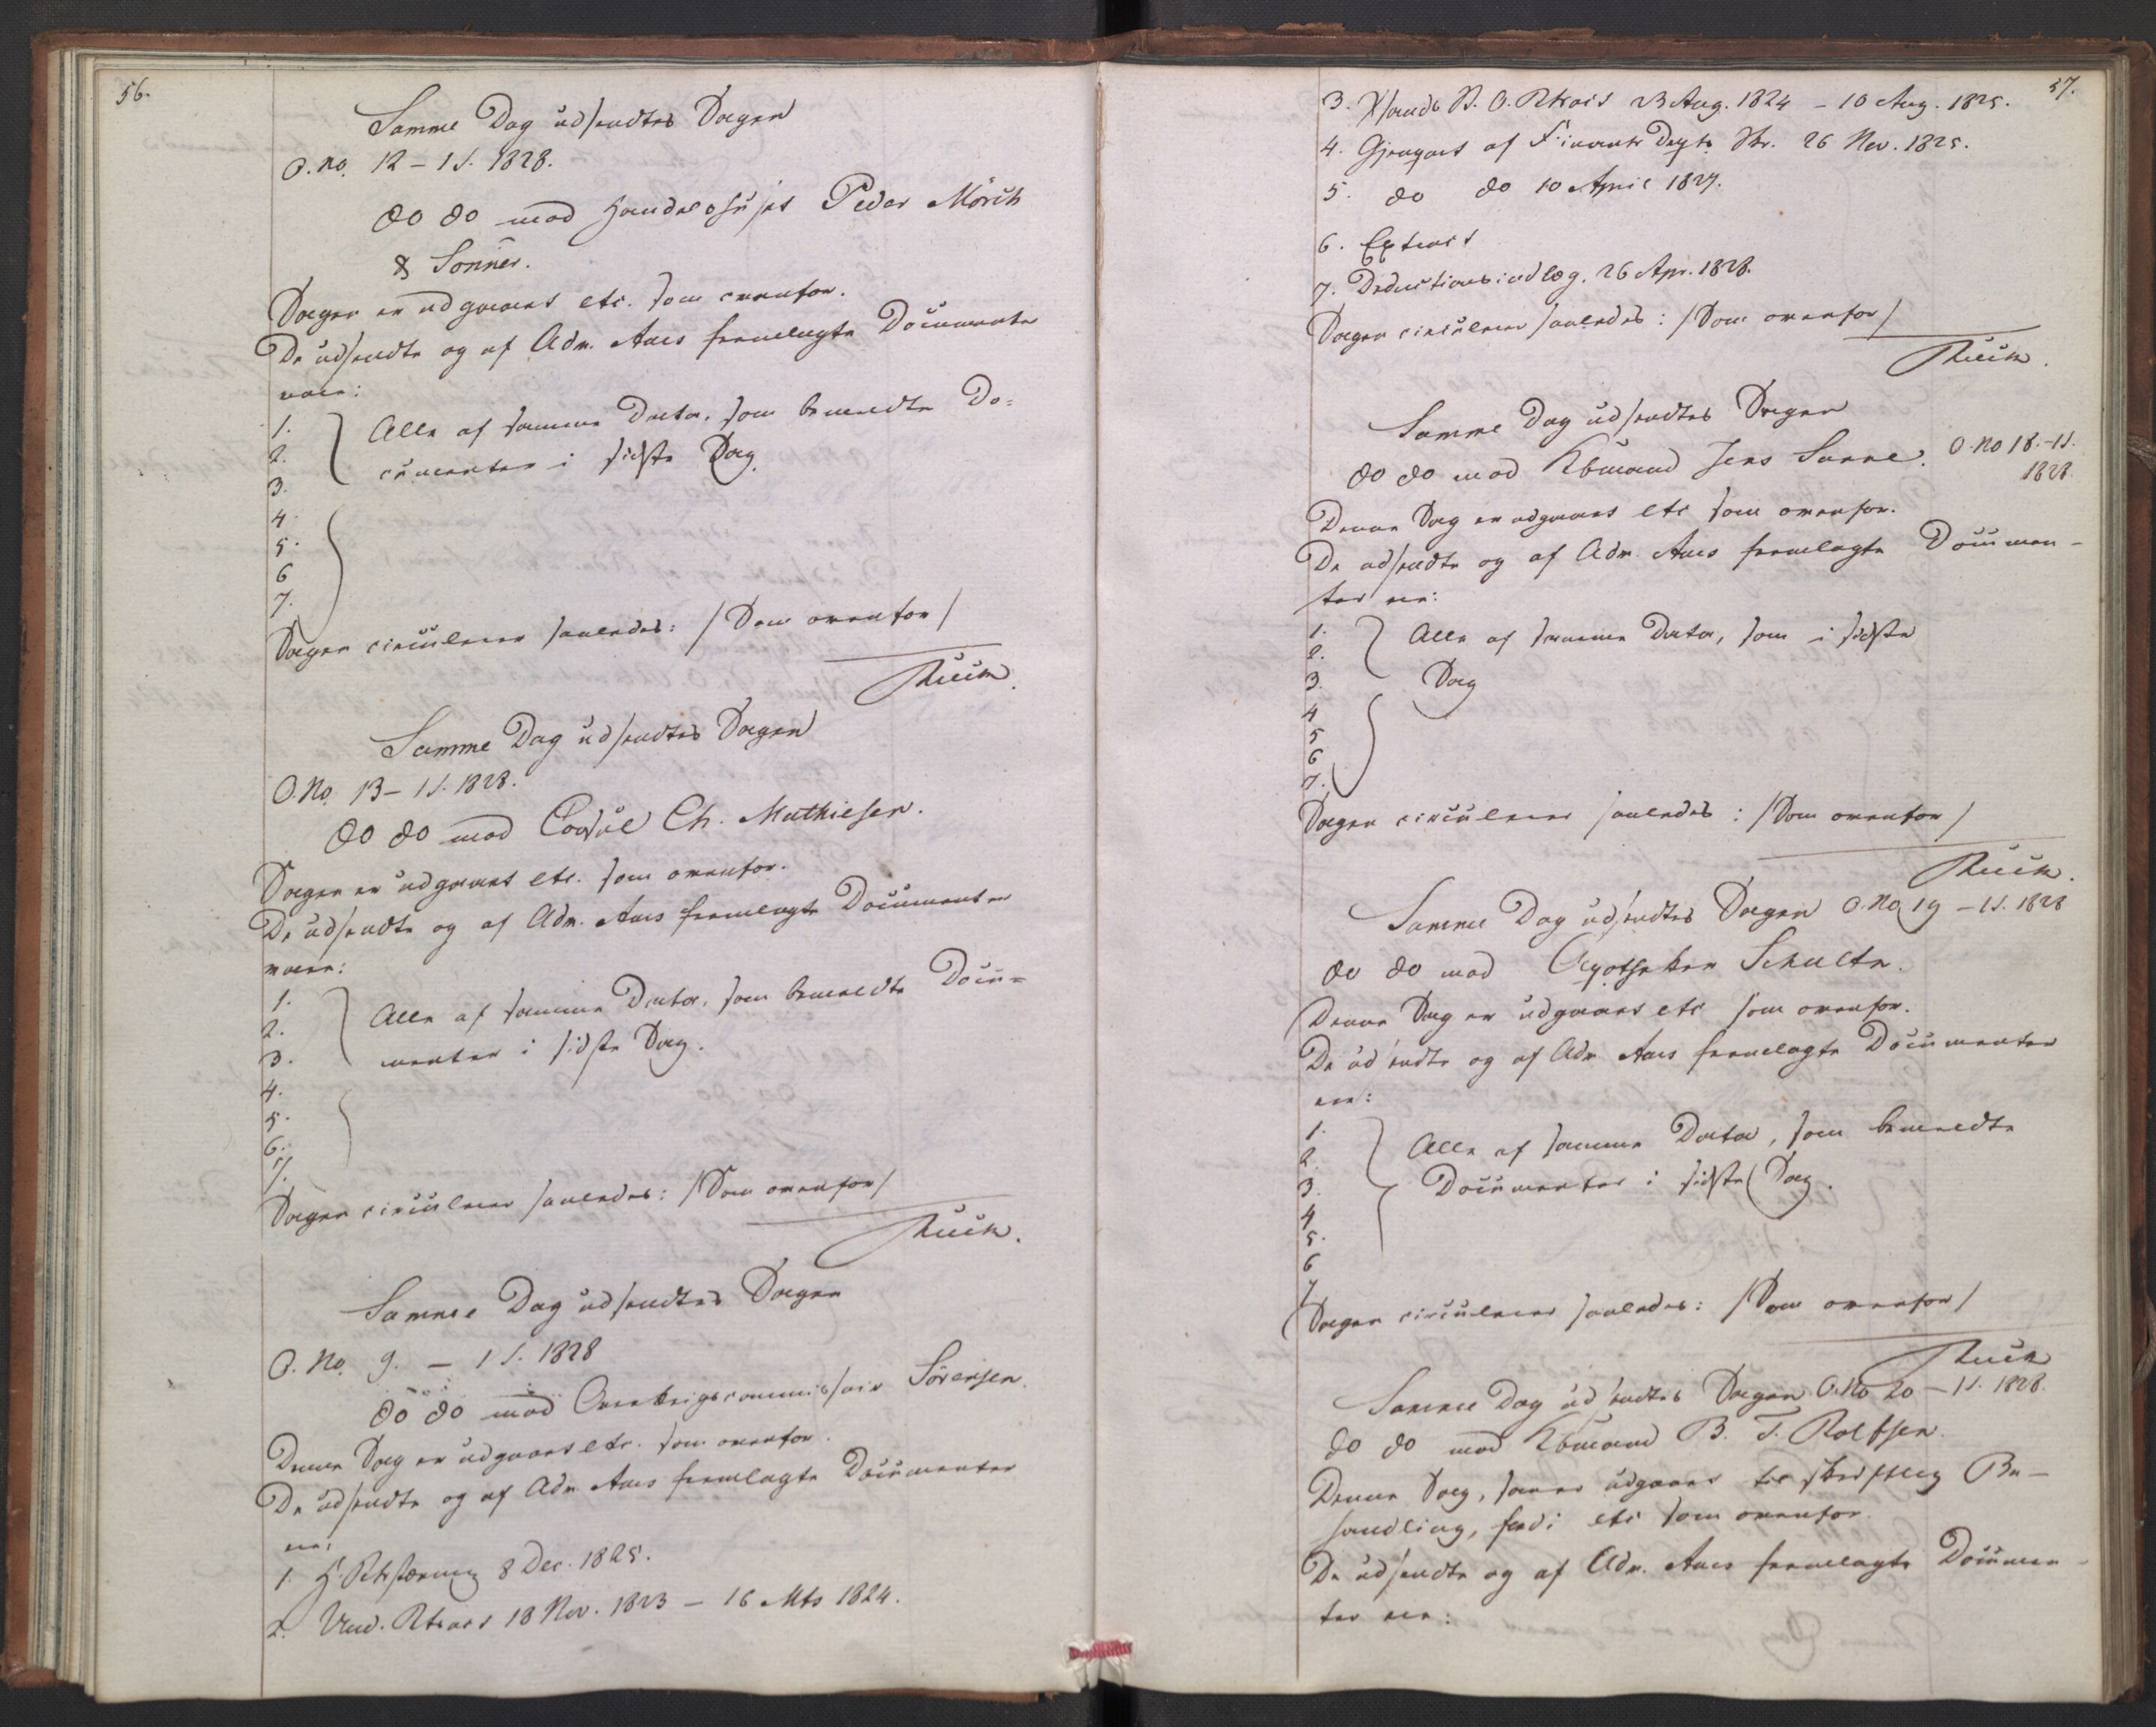 56.
Samme Dag udsendtes Sagen
O. No. 12 - 1 S. 1828.
do do mod Handelshuset Peder Mörch
& Sönner.
Sagen er udgaaet etc. som ovenfor.
De udsendte og af Adv. Aars fremlagte Documenter
vare:
1.
2. Alle af samme Data, som bemeldte Do-
3. cumenter i sidste Sag.
4.
5.
6
7.
Sagen circulerer saaledes: /Som ovenfor/
Samme Dag udsendtes Sagen
O. No. 13 - 1 S. 1828.
do do mod Consul Ch. Mathiesen.
Sagen er udgaaet etc. som ovenfor.
De udsendte og af Adv. Aars fremlagte Documenter
vare:
1.
2. Alle af samme Data, som bemeldte Docu-
3. menter i sidste Sag.
4.
5.
6.
7.
Sagen circulerer saaledes: /Som ovenfor/
Samme Dag udsendtes Sagen
O. No. 9. - 1 S. 1828
do do mod Overkrigscommissair Sörensen.
Denne Sag er udgaaet etc. som ovenfor.
De udsendte og af Adv. Aars fremlagte Documenter
ere:
1. H. Rts stævning 8 Dec. 1825.
2. Und. Rtsact 18 Nov. 1823 - 16 Mts 1824.
57.
3. B. O. Rtsact 23 Aug. 1824 - 10 Aug. 1825.
4. Gjenpart af Finants Depts Skr. 26 Nov. 1825.
5. do do 10 April 1827.
6. Extract
7. Deductionsindlæg. 26 Apr. 1828.
Sagen circulerer saaledes: /Som ovenfor/
Samme Dag udsendtes Sagen
do do mod Kbmand Jens Sanne. O. No 18. - 1 S.
1828.
Denne Sag er udgaaet etc som ovenfor.
De udsendte og af Adv. Aars fremlagte Documen-
ter ere:
1.
2. Alle af samme Data, som i sidste
3. Sag
4
5
6
7.
Sagen circulerer saaledes: /Som ovenfor/
Samme Dag udsendtes Sagen O. No. 19 - 1 S. 1828
do do mod Apotheker Schulte.
Denne Sag er udgaaet etc som ovenfor.
De udsendte og af Adv. Aars fremlagte Documenter
ere:
1.
2. Alle af samme Data, som bemeldte
3. Documenter i sidste Sag.
4
5.
6
7
Sagen circulerer saaledes: /Som ovenfor/
Samme Dag udsendtes Sagen O. No 20 - 1 S. 1828.
do do mod Kbmand B. T. Rolfsen.
Denne Sag, som er udgaaet til skriftlig Be-
handling, fordi etc som ovenfor.
De udsendte og af Adv. Aars fremlagte Documen-
ter ere: